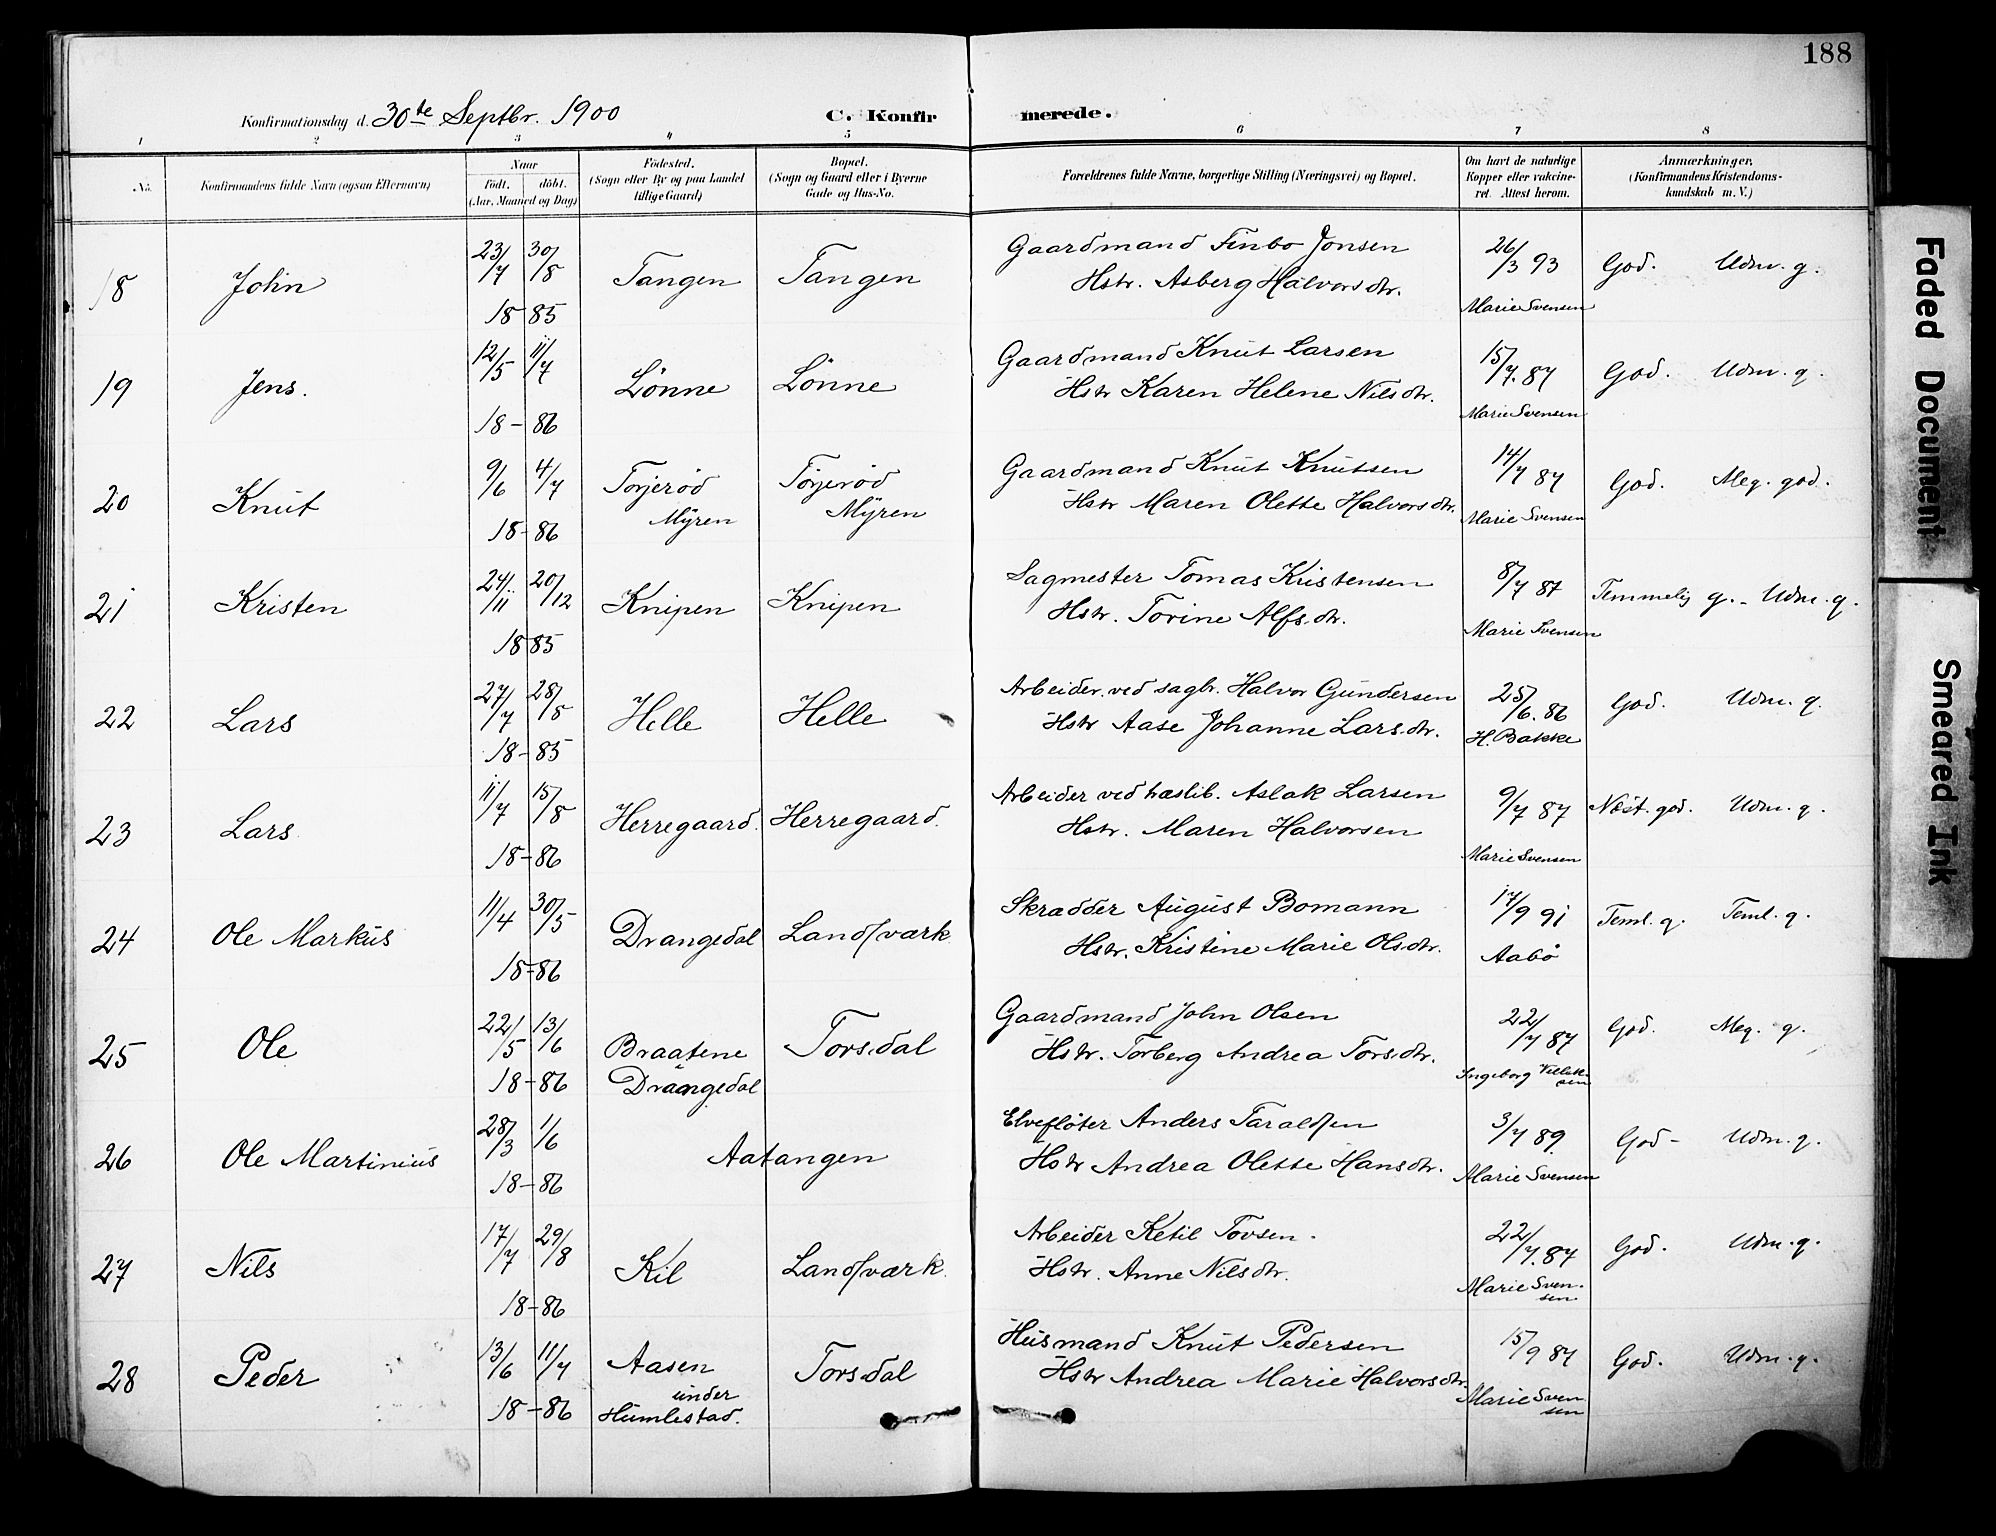 188
Konfirmationsdag d. 30te Septbr. 1900 C. Konfirmerede.
1 2 3 4 5 6 7 8
No. Konfirmandens fulde Navn (ogsaa Efternavn) Naar født. døbt. (Aar, Maaned og Dag) Fødested. (Sogn eller By og paa Landet tillige Gaard) Bopæl. (Sogn og Gaard eller i Byerne Gade og Hus-No. Forældrenes fulde Navne, borgerlige Stilling (Næringsvei) og Bopæl. Om havt de naturlige Kopper eller vakcineret. Attest herom. Anmærkninger. (Konfirmandens Kristendomskundskab m. V.)
18 John 23/7 30/8 Tangen Tangen Gaardmand Finbo Jonsen 26/3 93 God. Udm. g.
18 85 Hstr. Asberg Halvorsdtr. Marie Svensen
19 Jens. 12/5 11/7 Lønne Lønne Gaardmand Knut Larsen 15/7. 87 God. Udm. g.
18 - 86 Hstr Karen Helene Nilsdtr. Marie Svensen
20 Knut 9/6 4/7 Torjerød Torjerød Gaardmand Knut Knutsen 14/7 87 God. Meg. god.
18-86 Myren Myren Hstr Maren Olette Halvorsdtr. Marie Svensen
21 Kristen 24/11 20/12 Knipen Knipen Sagmester Tomas Kristensen 8/7 87 Temmelig g. - Udm. g.
18 85 Hstr. Torine Alfs.dtr. Marie Svensen
22 Lars 27/7 28/8 Helle Helle Arbeider. ved sagbr. Halvor Gundersen 25/6. 86 God. Udm. g.
18-85 Hstr Aase Johanne Lars.dtr. H. Bakke
23 Lars 11/7 15/8 Herregaard. Herregaard. Arbeider ved træslib. Aslak Larsen 9/7 87 Næst. god. Udm. g.
18-86 Hstr. Maren Halvorsen Marie Svensen
24 Ole Markus 11/4 30/5 Drangedal Landsværk. Skrædder August Bomann 17/9 91 Teml. g. Teml. g.
18-86 Hstr. Kristine Marie Olsdtr. Aabø
25 Ole 22/5 13/6 Braatene Torsdal Gaardmand John Olsen 22/7 87 God. Meg. g.
18-86 Drangedal Hstr. Torberg Andrea Torsdtr. Ingeborg
26 Ole Martinius 28/3 1/6 Aatangen Elvefløter Anders Taraldsen 3/7 89. God - Udm. g.
18-86 Hstr Andrea Olette Hansdtr. Marie Svensen
27 Nils 17/7 29/8 Kil Landsværk. Arbeider Ketil Tovsen. 22/7. 87 God. Udm. g.
18-86 Hstr. Anne Nilsdtr. Marie Svensen.
28 Peder 13/6 11/7 Aasen Torsdal Husmand Knut Pedersen 15/9 87 God. Udm. g.
18-86 under Humlestad. Hstr Andrea Marie Halvorsdtr. Marie Svensen
Faded Document
Smeared Ink